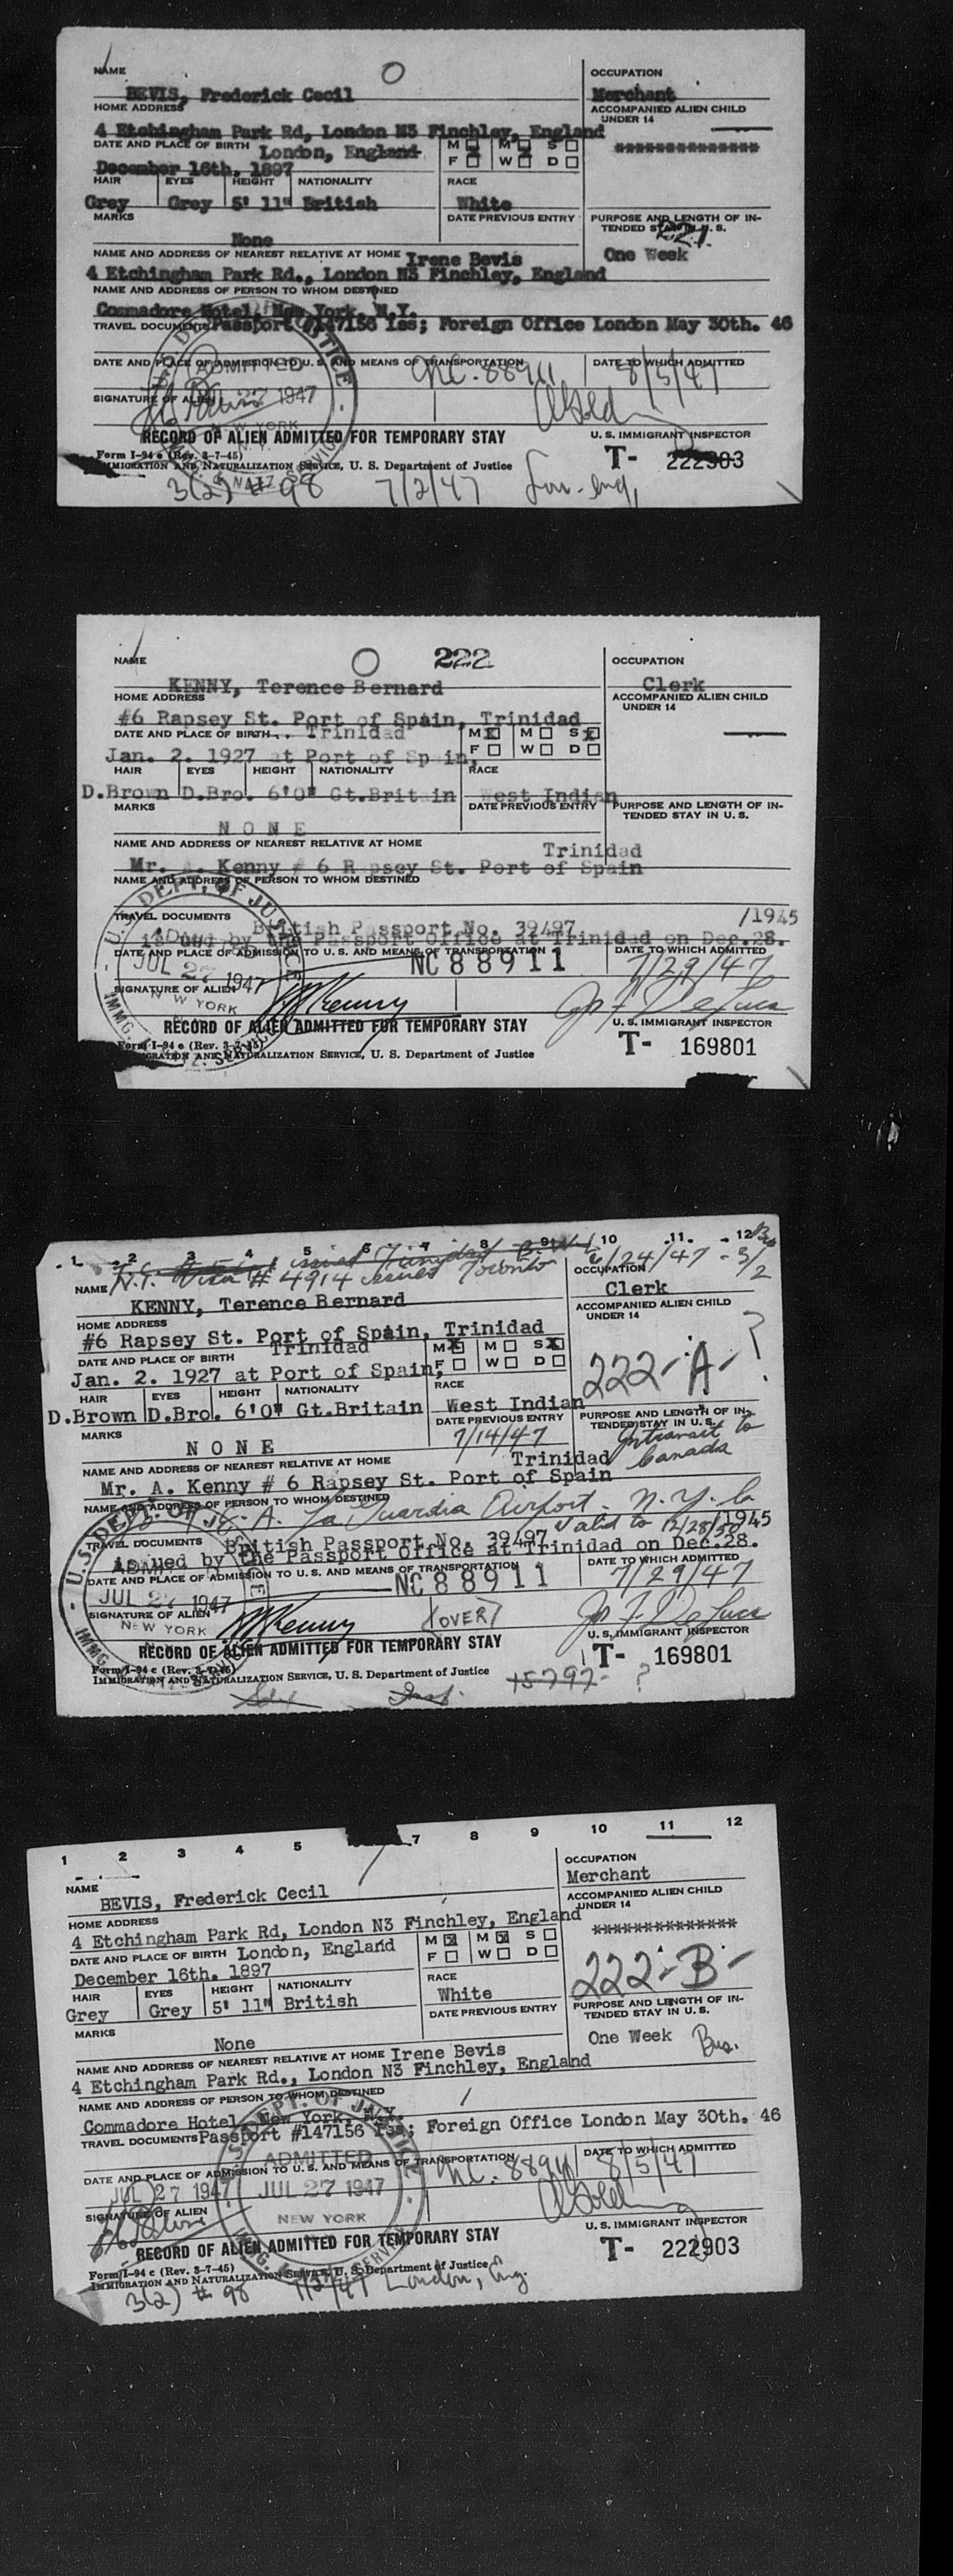 NAME
OCCUPATION
BEVIS, Frederick Cecil
Merchant
HOME ADDRESS
ACCOMPANIED ALIEN CHILD
UNDER 14
4 Etchingham Park Rd, London N3 Finchley, England
DATE AND PLACE OF BIRTH London, England
M M S
**************
December 16th. 1897
F W D
HAIR EYES HEIGHT NATIONALITY
RACE
Grey Grey 5' 11" British
White
MARKS
DATE PREVIOUS ENTRY
PURPOSE AND LENGTH OF IN-
TENDED STAY IN U. S.
None
One Week
NAME AND ADDRESS OF NEAREST RELATIVE AT HOME Irene Bevis
4 Etchingham Park Rd., London N3 Finchley, England
NAME AND ADDRESS OF PERSON TO WHOM DESTINED
Commadore Hotel, New York, N.Y.
TRAVEL DOCUMENTS Passport #147156 Iss; Foreign Office London May 30th. 46
DATE AND PLACE OF ADMISSION TO U. S. AND MEANS OF TRANSPORTATION
DATE TO WHICH ADMITTED
ADMITTED
NC. 88911
8/5/47
SIGNATURE OF ALIEN
JUL 27 1947
NEW YORK
RECORD OF ALIEN ADMITTED FOR TEMPORARY STAY
U. S. IMMIGRANT INSPECTOR
Form I-94 c (Rev. 3-7-45)
IMMIGRATION AND NATURALIZATION SERVICE, U. S. Department of Justice
T- 222903
3(2) # 98 7/2/47 Lon. eng.
222
NAME
OCCUPATION
KENNY, Terence Bernard
Clerk
HOME ADDRESS
ACCOMPANIED ALIEN CHILD
UNDER 14
#6 Rapsey St. Port of Spain, Trinidad
DATE AND PLACE OF BIRTH Trinidad
M M S
Jan. 2. 1927 at Port of Spain,
F W D
HAIR EYES HEIGHT NATIONALITY
RACE
D.Brown D.Bro. 6'0" Gt.Britain
West Indian
MARKS
DATE PREVIOUS ENTRY
PURPOSE AND LENGTH OF IN-
TENDED STAY IN U. S.
N O N E
NAME AND ADDRESS OF NEAREST RELATIVE AT HOME
Trinidad
Mr. A. Kenny # 6 Rapsey St. Port of Spain
NAME AND ADDRESS OF PERSON TO WHOM DESTINED
U. S. DEPT. OF JUSTICE
TRAVEL DOCUMENTS
British Passport No. 39497
/1945
issued by the Passport Office at Trinidad on Dec.28.
DATE AND PLACE OF ADMISSION TO U. S. AND MEANS OF TRANSPORTATION
DATE TO WHICH ADMITTED
JUL 27 1947
NC 88911
7/29/47
SIGNATURE OF ALIEN
NEW YORK
Kenny
Jos F. DeLuca
RECORD OF ALIEN ADMITTED FOR TEMPORARY STAY
U. S. IMMIGRANT INSPECTOR
Form I-94 c (Rev. 3-7-45)
IMMIGRATION AND NATURALIZATION SERVICE, U. S. Department of Justice
T- 169801
1 2 3 4 5 6 7 8 9 10 11 12
issued Trinidad B.W.I.
N.I. Visa # 4914 issued Toronto 6/24/47 - 3/2
NAME
OCCUPATION
KENNY, Terence Bernard
Clerk
HOME ADDRESS
ACCOMPANIED ALIEN CHILD
UNDER 14
#6 Rapsey St. Port of Spain, Trinidad
DATE AND PLACE OF BIRTH Trinidad
M M S
?
Jan. 2. 1927 at Port of Spain,
F W D
222-A-
HAIR EYES HEIGHT NATIONALITY
RACE
D.Brown D.Bro. 6'0" Gt.Britain
West Indian
MARKS
DATE PREVIOUS ENTRY
PURPOSE AND LENGTH OF IN-
TENDED STAY IN U. S.
N O N E
7/14/47
Intransit to
Canada
NAME AND ADDRESS OF NEAREST RELATIVE AT HOME
Trinidad
Mr. A. Kenny # 6 Rapsey St. Port of Spain
NAME AND ADDRESS OF PERSON TO WHOM DESTINED
La Guardia Airport - N.Y.C.
U. S. DEPT. OF JUSTICE
Valid to 12/28/50
TRAVEL DOCUMENTS
British Passport No. 39497
/1945
issued by the Passport Office at Trinidad on Dec.28.
ADMITTED
DATE AND PLACE OF ADMISSION TO U. S. AND MEANS OF TRANSPORTATION
DATE TO WHICH ADMITTED
JUL 27 1947
NC 88911
7/29/47
SIGNATURE OF ALIEN
NEW YORK
Kenny
(OVER)
Jos F. DeLuca
RECORD OF ALIEN ADMITTED FOR TEMPORARY STAY
U. S. IMMIGRANT INSPECTOR
Form I-94 c (Rev. 3-7-45)
IMMIGRATION AND NATURALIZATION SERVICE, U. S. Department of Justice
T- 169801
?
1 2 3 4 5 7 8 9 10 11 12
NAME
OCCUPATION
BEVIS, Frederick Cecil
Merchant
HOME ADDRESS
ACCOMPANIED ALIEN CHILD
UNDER 14
4 Etchingham Park Rd, London N3 Finchley, England
DATE AND PLACE OF BIRTH London, England
M M S
**************
December 16th. 1897
F W D
222-B-
HAIR EYES HEIGHT NATIONALITY
RACE
Grey Grey 5' 11" British
White
MARKS
DATE PREVIOUS ENTRY
PURPOSE AND LENGTH OF IN-
TENDED STAY IN U. S.
None
One Week Bus.
NAME AND ADDRESS OF NEAREST RELATIVE AT HOME Irene Bevis
4 Etchingham Park Rd., London N3 Finchley, England
NAME AND ADDRESS OF PERSON TO WHOM DESTINED
Commadore Hotel, New York, N.Y.
TRAVEL DOCUMENTS Passport #147156 Iss; Foreign Office London May 30th. 46
ADMITTED
DATE AND PLACE OF ADMISSION TO U. S. AND MEANS OF TRANSPORTATION
DATE TO WHICH ADMITTED
JUL 27 1947 JUL 27 1947
NC. 88911
8/5/47
SIGNATURE OF ALIEN
NEW YORK
RECORD OF ALIEN ADMITTED FOR TEMPORARY STAY
U. S. IMMIGRANT INSPECTOR
Form I-94 c (Rev. 3-7-45)
IMMIGRATION AND NATURALIZATION SERVICE, U. S. Department of Justice
T- 222903
3(2) # 98 7/2/47 London, Eng.